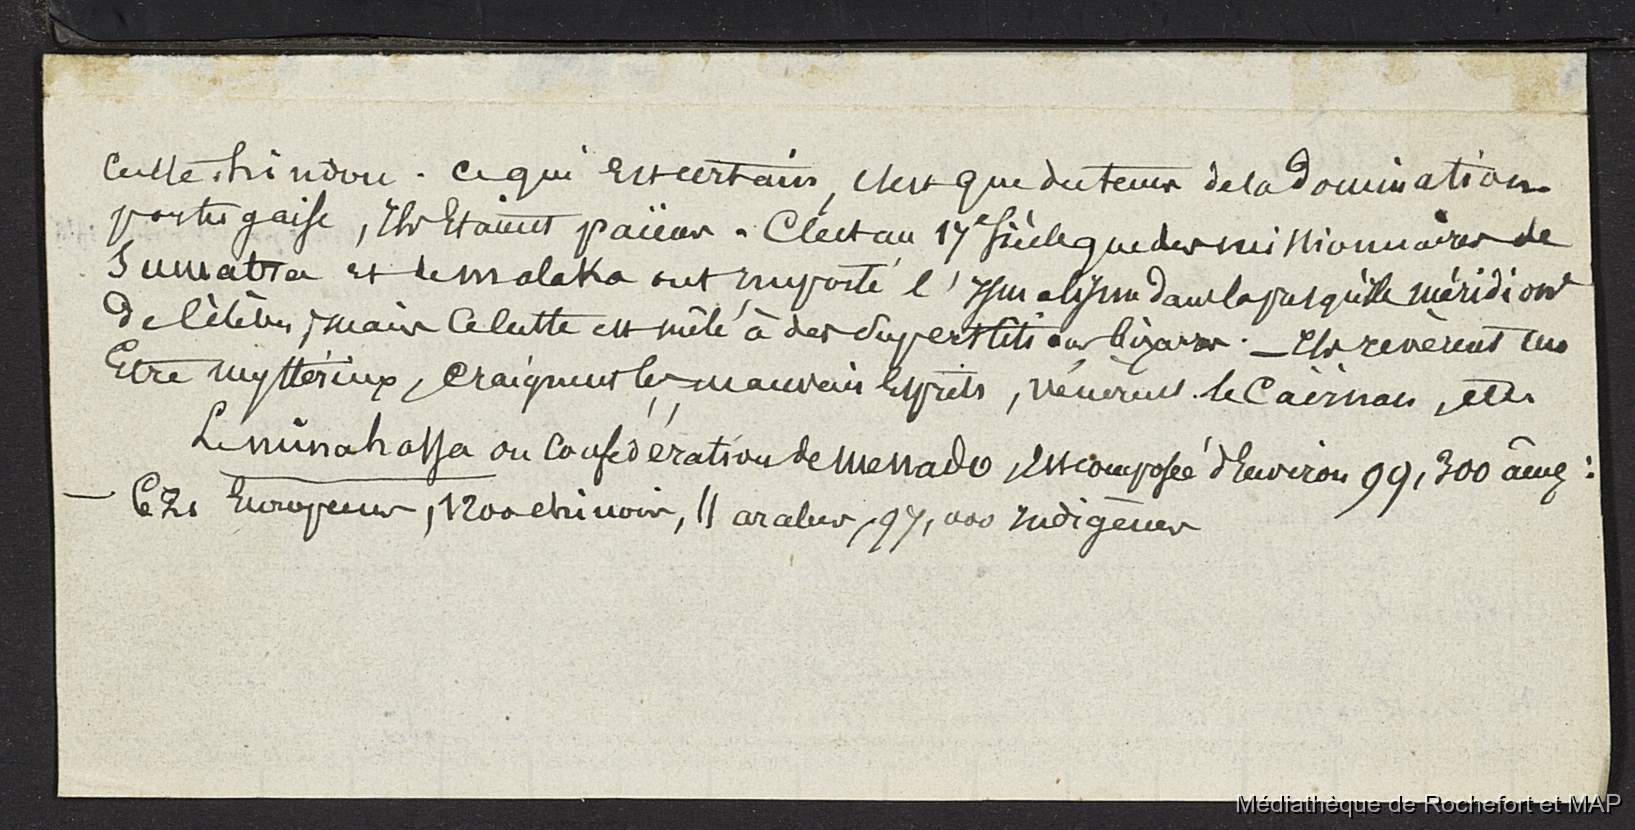 Culte hindou. Ce qui est certain, c'est que du temps de la Domination
portugaise, Ils Etaient païens. C'est au 17e Siècle que des missionnaires de
Sumatra et de malaka ont importé l'Ismalisme dans la presqu'ile méridion
De Célèbes, mais ce culte est mêlé à des Superstitions bizares. — Ils revèrent un
Etre mystérieux, Craignent les mauvais Esprits, vénèrent le Caïman, etc.
Le minahassa ou Confédération de Menado, Est composée d'Environ 99,300 âmes :
— Européens, 1200 chinois, 11 arabes, 97,000 Indigènes
Médiathèque de Rochefort et MAP